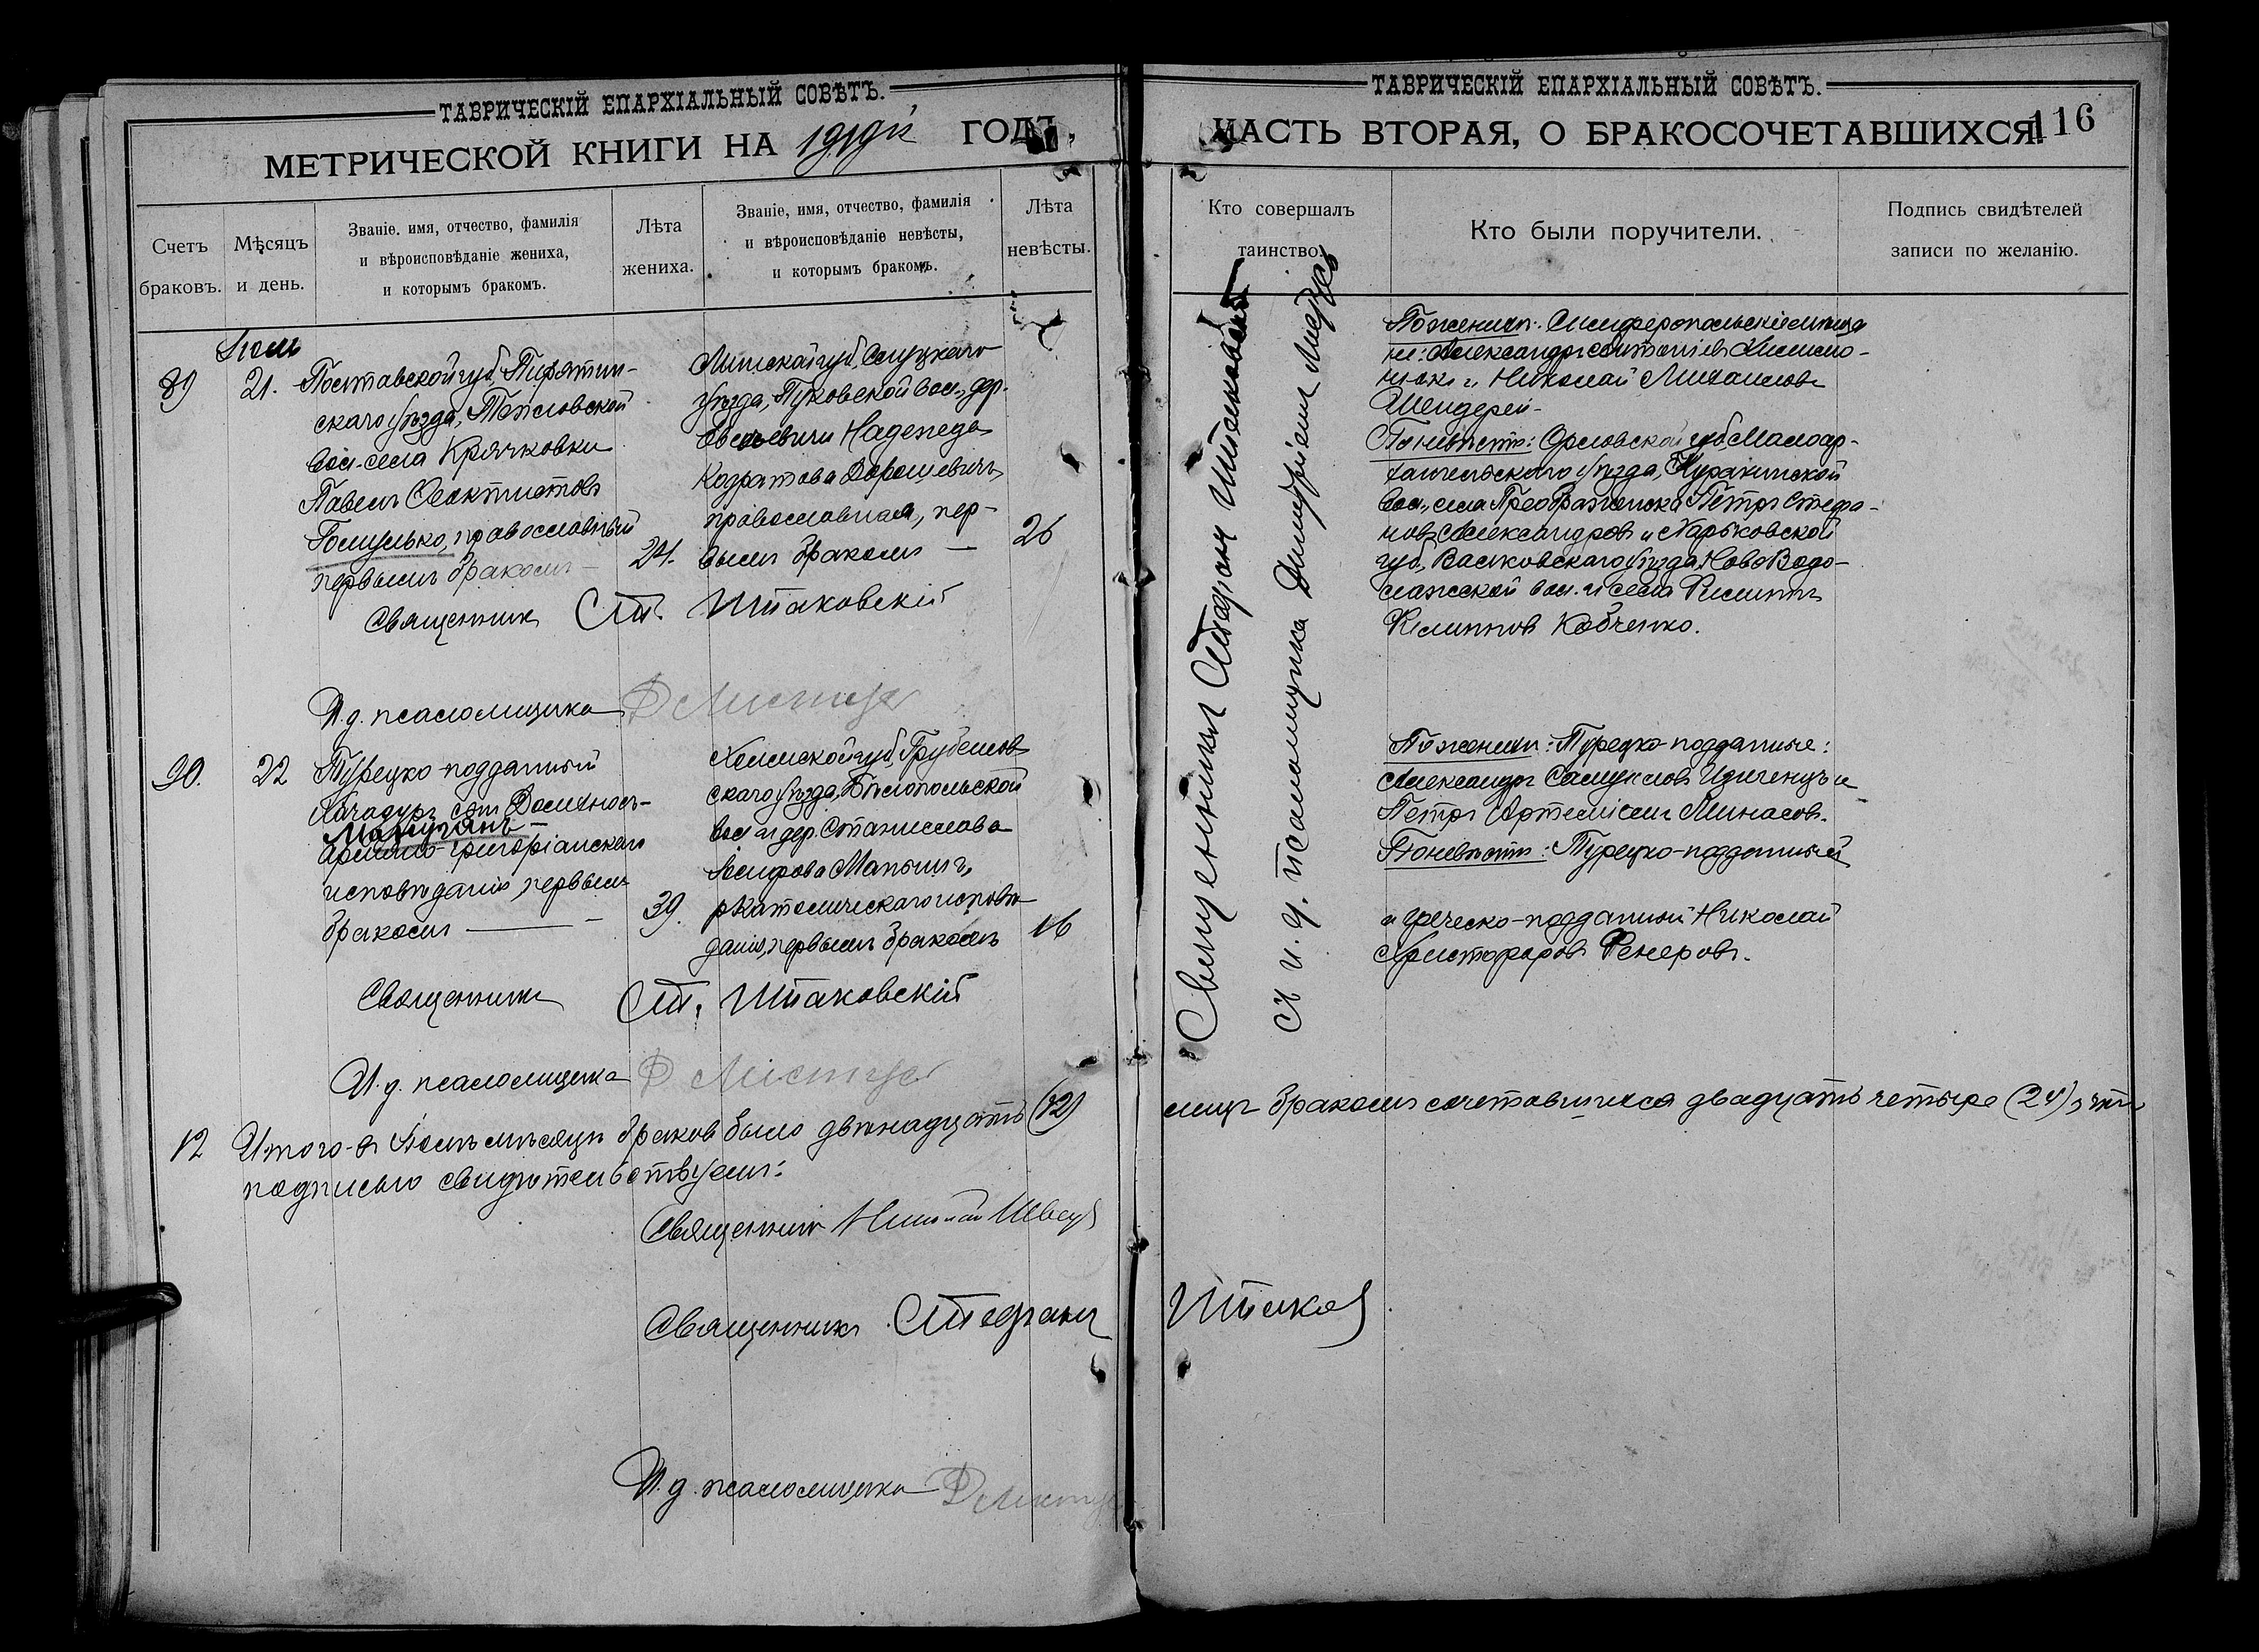 ТАВРИЧЕСКІЙ ЕПАРХІАЛЬНЫЙ СОВѢТЪ.
МЕТРИЧЕСКОЙ КНИГИ НА 1919й ГОДЪ,
Счетъ браковъ.
Мѣсяцъ и день.
Званіе. имя, отчество, фамилія
и вѣроисповѣданіе жениха,
и которымъ бракомъ.
Лѣта
жениха.
Званіе, имя, отчество, фамилія
и вѣроисповѣданіе невѣсты,
и которымъ бракомъ.
Лѣта
невѣсты.
Іюль
89
21.
Полтавской губ, Пирятин-
скаго уѣзда,
вол. села Крячковки
Павелъ Ѳеоктистовъ
православный
первымъ бракомъ
24.
Минской губ, Слуцкаго
уѣзда, Пуковской вол., дер.
Надежда
Кодратова Дорошевичъ,
православная, пер-
вымъ бракомъ —
26
Священникъ Ст. Шпаковскій
И.д. псаломщика Д
90.
22
Турецко-подданный
Хачадуръ
армяно-григоріанскаго
исповѣданія, первымъ
бракомъ —
39.
Холмской губ, Грубешов
скаго уѣзда, Бѣлопольской
вол и дер. Станислава
Іосифова
р-католическаго исповѣ-
данія, первымъ бракомъ
16
Священникъ Ст. Шпаковскій
И.д. псаломщика Д
12
Итого въ Іюлѣ мѣсяцѣ браковъ было двѣнадцать (12)
подписью свидѣтельствуемъ:
Священникъ Николай Швецъ
Священникъ Стефанъ
И.д. псаломщика Д
ТАВРИЧЕСКІЙ ЕПАРХІАЛЬНЫЙ СОВѢТЪ.
ЧАСТЬ ВТОРАЯ, О БРАКОСОЧЕТАВШИХСЯ.
116
Кто совершалъ
таинство.
Кто были поручители.
Подпись свидѣтелей
записи по желанію.
Священникъ Стефанъ Шпаковскій
съ и. д. псаломщика Димитріемъ
По женихѣ: Симферопольскіе мѣща
не: Александръ
и Николай Михаиловъ
Шендерей-
По невѣстѣ: Орловской губ, Малоар-
хангельскаго уѣзда, Куракинской
вол., села Преображенска Петръ Стефа-
новъ Александровъ и Харьковской
губ, Валковскаго уѣзда, Ново Водо-
лажской вол. и села Филиппъ
Филипповъ Кобченко.
По женихѣ: Турецко-подданные:
Александръ Самуиловъ и
Петръ Артеміевъ Минасовъ.
По невѣстѣ: Турецко-подданный
и греческо-подданный Николай
Христофоровъ Фенеровъ.
лицъ бракомъ сочетавшихся двадцать четыре (24), что
Шпаков